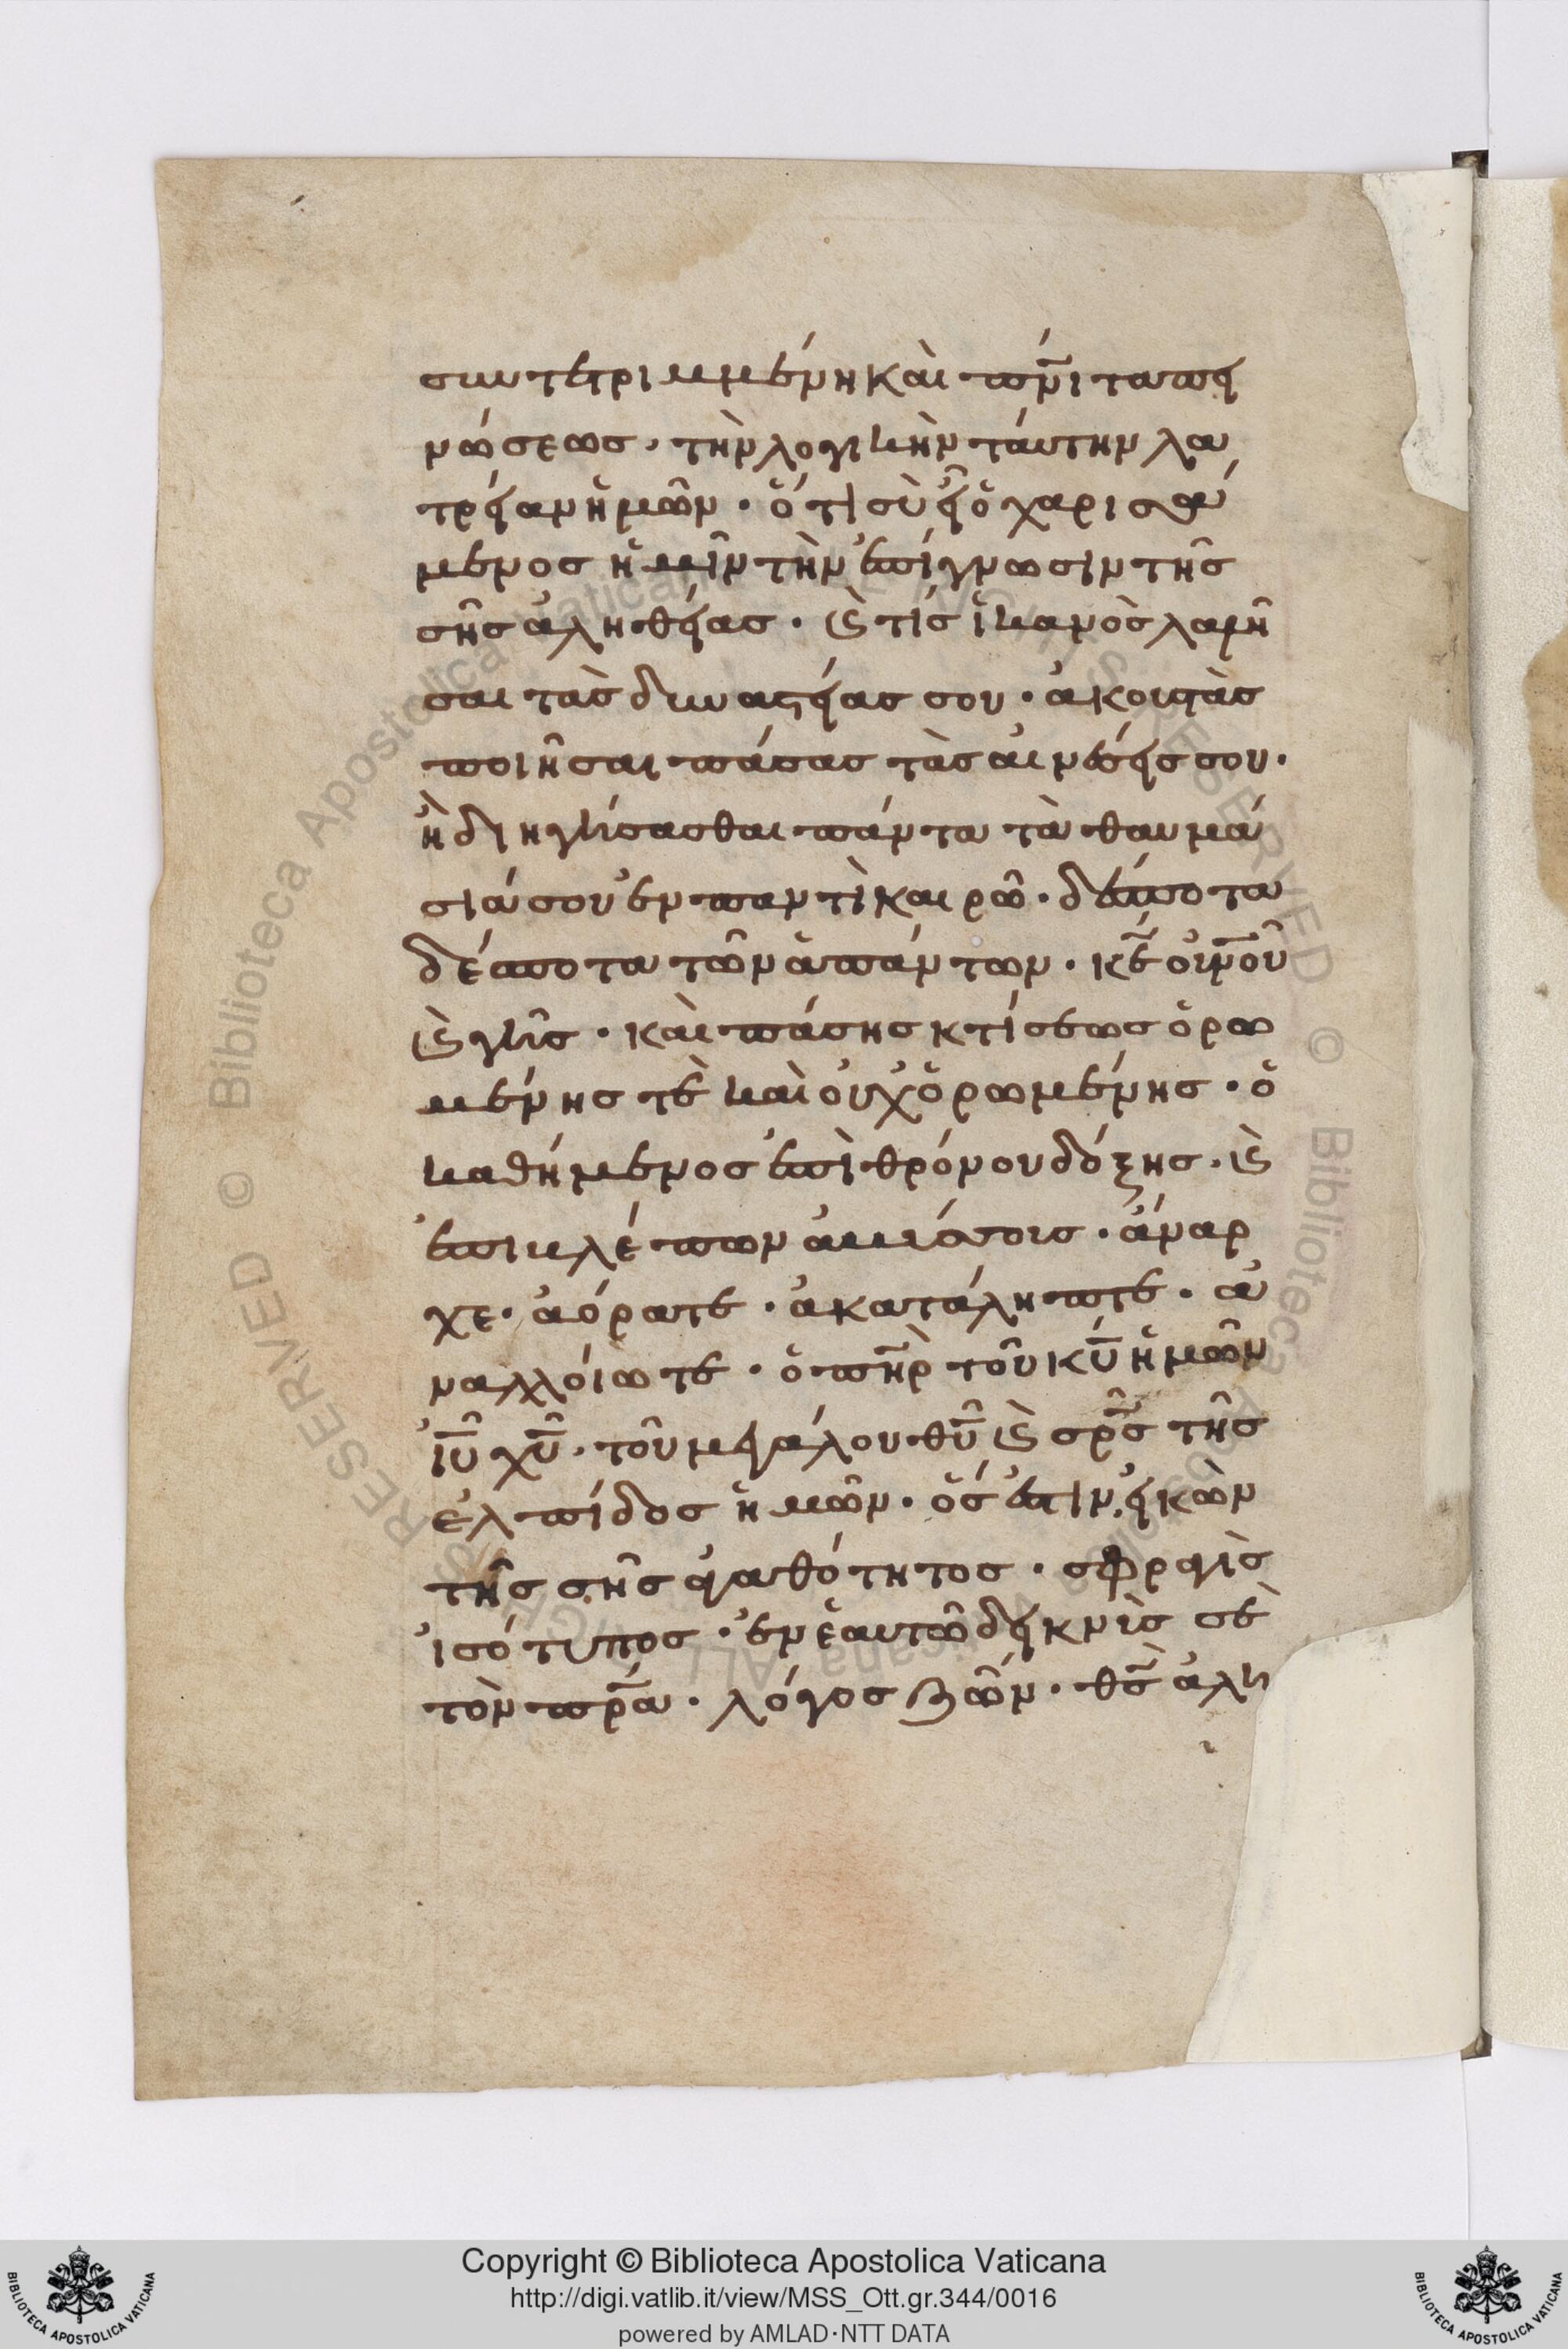 συντετριμμένη καὶ πν̅ι ταπει
νώσεως, τὴν λογικὴν ταύτην λα
τρείαν ἡμῶν · ὅτι σὺ εἶ ὁ χαρισά
μενος ἡμῖν τὴν ἐπίγνωσιν τῆς
σῆς ἀληθείας · ϗ τίς ἱκανὸς λαλῆ
σαι τὰς δυναστείας σου · ἀκουστὰς
ποιῆσαι πάσας τὰς αἰνέσεις σου ·
ἢ διηγήσασθαι πάντα τὰ θαυμά
σιά σου ἐν παντὶ καιρῶ · δέσποτα
δέσποτα τῶν ἁπάντων · κ̅ε οὐν̅οῦ
ϗ γῆς · καὶ πάσης κτίσεως ὁρω
μένης τὲ καὶ οὐχ ὁρωμένης · ὁ
καθήμενος ἐπὶ θρόνου δόξης · ϗ
ἐπιβλέπων ἀβύσσοις · ἄναρ
χε · ἀόρατε · ἀκατάληπτε · ἀ
ναλλοίωτε · ὁ π̅ηρ τοῦ κ̅υ ἡμῶν
ι̅υ χ̅υ · τοῦ μεγάλου θ̅υ ϗ σ̅ρ̅ς τῆς
ἐλπίδος ἡμῶν · ὅς ἐστιν εἰκὼν
τῆς σῆς ἀγαθότητος · σφραγὶς
ἰσότυπος · ἐν ἑαυτῶ δεικνὺς σὲ
τὸν π̅ρ̅α · λόγος ζῶν · θ̅ς ἀλη
Copyright © Biblioteca Apostolica Vaticana
http://digi.vatlib.it/view/MSS_Ott.gr.344/0016
powered by AMLAD·NTT DATA